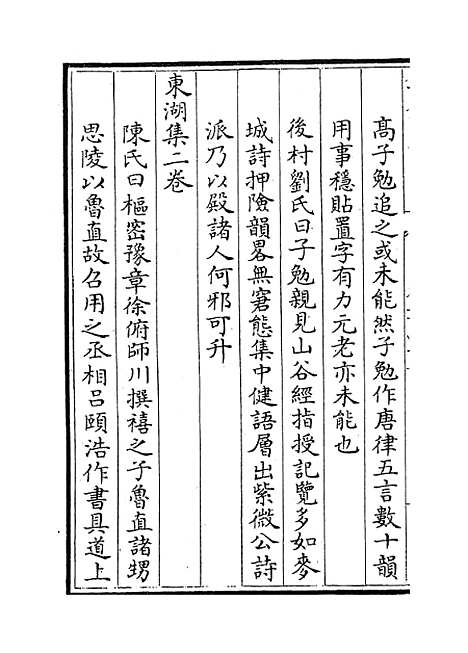 髙子勉追之或未能然子勉作唐律五言數十韻
用事穩貼置字有力元老亦未能也
後村劉氏曰子勉親見山谷經指授記覽多如麥
城詩押險韻畧無窘態集中健語層出紫微公詩
派乃以殿諸人何邪可升
東湖集二卷
陳氏曰樞密豫章徐俯師川撰禧之子魯直諸甥
思陵以魯直故召用之丞相吕頤浩作書具道上